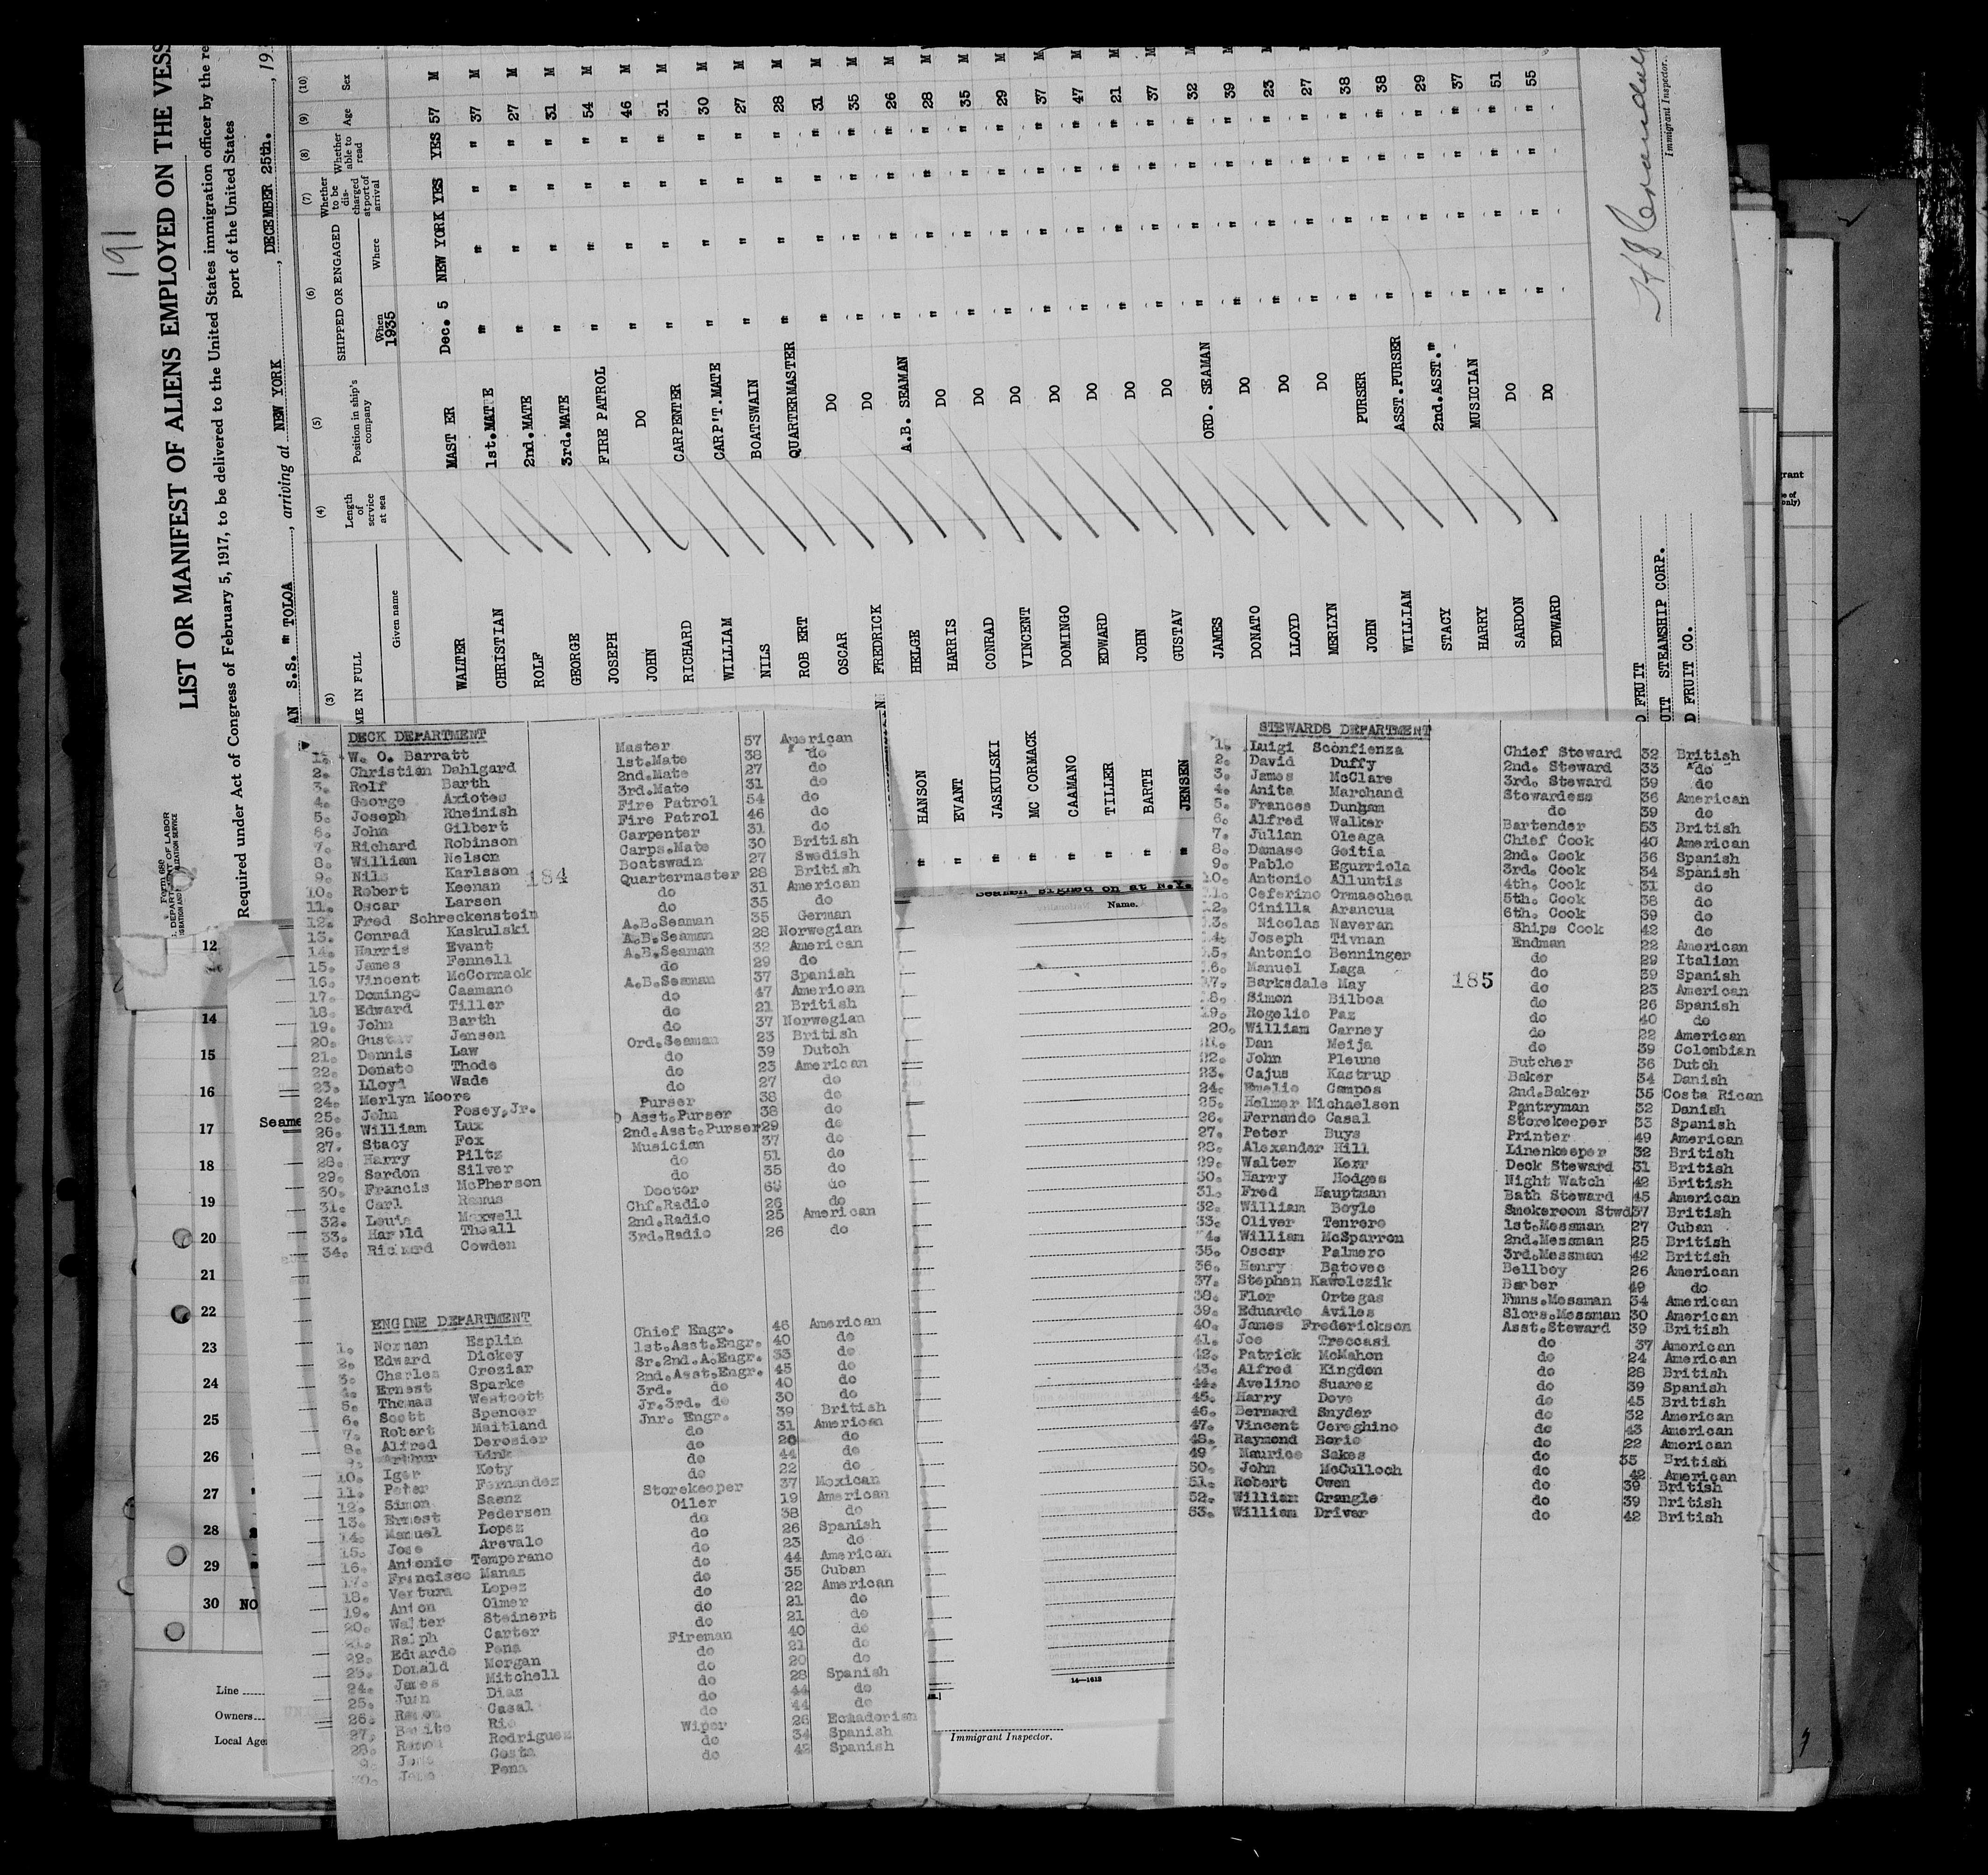 191
LIST OR MANIFEST OF ALIENS EMPLOYED ON THE VESS
Required under Act of Congress of February 5, 1917, to be delivered to the United States immigration officer by the re
port of the United States
S.S. " TOLOA, arriving at NEW YORK, DECEMBER 25th., 19
(3) (4) (5) (6) (7) (8) (9) (10)
ME IN FULL
Given name
Length of service at sea
Position in ship's company
SHIPPED OR ENGAGED
When 1935
Where
Whether to be discharged at port of arrival
Whether able to read
Age
Sex
WALTER MAST ER Dec. 5 NEW YORK YES YES 57 M
CHRISTIAN 1st.MATE " " " " 37 M
ROLF 2nd.MATE " " " " 27 M
GEORGE 3rd.MATE " " " " 31 M
JOSEPH FIRE PATROL " " " " 54 M
JOHN DO " " " " 46 M
RICHARD CARPENTER " " " " 31 M
WILLIAM CARP'T.MATE " " " " 30 M
NILS BOATSWAIN " " " " 27 M
ROB ERT QUARTERMASTER " " " " 28 M
OSCAR DO " " " " 31 M
FREDRICK DO " " " " 35 M
HANSON HELGE A.B. SEAMAN " " " " 26 M
EVANT HARRIS DO " " " " 28 M
JASKULSKI CONRAD DO " " " " 35 M
MC CORMACK VINCENT DO " " " " 29 M
CAAMANO DOMINGO DO " " " " 37 M
TILLER EDWARD DO " " " " 47 M
BARTH JOHN DO " " " " 21 M
JENSEN GUSTAV DO " " " " 37 M
JAMES ORD. SEAMAN " " " " 32 M
DONATO DO " " " " 39 M
LLOYD DO " " " " 23 M
MERLYN DO " " " " 27 M
JOHN PURSER " " " " 38 M
WILLIAM ASST.PURSER " " " " 38 M
STACY 2nd.ASST." " " " " 29 M
HARRY MUSICIAN " " " " 37 M
SARDON DO " " " " 51 M
EDWARD DO " " " " 55 M
Immigrant Inspector.
D FRUIT
UIT STEAMSHIP CORP.
D FRUIT CO.
Form 689
DECK DEPARTMENT
1. W. O. Barratt Master 57 American
2. Christian Dahlgard 1st.Mate 38 do
3. Rolf Barth 2nd.Mate 27 do
4. George Axiotes 3rd.Mate 31 do
5. Joseph Rheinish Fire Patrol 54 do
6. John Gilbert Fire Patrol 46 do
7. Richard Robinson Carpenter 31 do
8. William Nelson Carps.Mate 30 British
9. Nils Karlsson Boatswain 27 Swedish
184
10. Robert Keenan Quartermaster 28 British
11. Oscar Larsen do 31 American
12. Fred Schreckenstein do 35 do
13. Conrad Kaskulski A.B.Seaman 35 German
14. Harris Evant A.B.Seaman 28 Norwegian
15. James Fennell A.B.Seaman 32 American
16. Vincent McCormack do 29 do
17. Domingo Caamano A.B.Seaman 37 Spanish
18. Edward Tiller do 47 American
19. John Barth do 21 British
20. Gustav Jensen do 37 Norwegian
21. Dennis Law Ord.Seaman 23 British
22. Donato Thode do 39 Dutch
23. Lloyd Wade do 23 American
24. Merlyn Moore do 27 do
25. John Posey,Jr. Purser 38 do
26. William Lux Asst.Purser 38 do
27. Stacy Fox 2nd.Asst.Purser 29 do
28. Harry Piltz Musician 37 do
29. Sardon Silver do 51 do
30. Francis McPherson do 35 do
31. Carl Ramus Doctor do
32. Louis Maxwell Chf.Radio 26 do
33. Harold Theall 2nd.Radio 25 American
34. Richard Cowden 3rd.Radio 26 do
ENGINE DEPARTMENT
1. Norman Esplin Chief Engr. 46 American
2. Edward Dickey 1st.Asst.Engr. 40 do
3. Charles Croziar Sr.2nd.A.Engr. 33 do
4. Ernest Sparks 2nd.Asst.Engr. 45 do
5. Thomas Westcott 3rd. do 40 do
6. Scott Spencer Jr.3rd. do 30 do
7. Robert Maitland Jnr. Engr. 39 British
8. Alfred Derosier do 31 American
9. Arthur Link do 20 do
10. Iger Kety do 44 do
11. Peter Fernandez do 22 do
12. Simon Saenz Storekeeper 37 Mexican
13. Ernest Pedersen Oiler 19 American
14. Manuel Lopez do 38 do
15. Jose Arevalo do 26 Spanish
16. Antonio Temperano do 23 do
17. Francisco Manas do 44 American
18. Ventura Lopez do 35 Cuban
19. Anton Olmer do 22 American
20. Walter Steinert do 21 do
21. Ralph Carter do 21 do
22. Eduardo Pena Fireman 40 do
23. Donald Morgan do 21 do
24. James Mitchell do 20 do
25. Juan Diaz do 28 Spanish
26. Ramon Casal do 44 do
27. Benito Rio do 44 do
28. Ramon Rodriguez Wiper 26 Ecuadorian
9. Jose Costa do 34 Spanish
30. Jose Pena do 42 Spanish
Seamen signed on at N.Y.
Name.
14—1612
Immigrant Inspector.
STEWARDS DEPARTMENT
1. Luigi Sconfienza Chief Steward 32 British
2. David Duffy 2nd. Steward 33 do
3. James McClare 3rd. Steward 39 do
4. Anita Marchand Stewardess 36 American
5. Frances Dunham do 39 do
6. Alfred Walker Bartender 53 British
7. Julian Oleaga Chief Cook 40 American
8. Damaso Goitia 2nd. Cook 36 Spanish
9. Pablo Egurriola 3rd. Cook 34 Spanish
10. Antonio Alluntis 4th. Cook 31 do
11. Ceferino Ormaechea 5th. Cook 38 do
12. Cinilla Arancua 6th. Cook 39 do
13. Nicolas Naveran Ships Cook 42 do
14. Joseph Tivnan Endman 22 American
15. Antonio Benninger do 29 Italian
16. Manuel Laga do 39 Spanish
17. Barksdale May 185 do 23 American
18. Simon Bilboa do 26 Spanish
19. Rogelio Paz do 40 do
20. William Carney do 22 American
21. Dan Meija do 39 Colombian
22. John Pleune Butcher 36 Dutch
23. Cajus Kastrup Baker 34 Danish
24. Emelio Campos 2nd.Baker 35 Costa Rican
25. Helmer Michaelsen Pantryman 32 Danish
26. Fernando Casal Storekeeper 33 Spanish
27. Peter Buys Printer 49 American
28. Alexander Hill Linenkeeper 32 British
29. Walter Kerr Deck Steward 31 British
30. Harry Hodges Night Watch 42 British
31. Fred Hauptman Bath Steward 45 American
32. William Boyle Smokeroom Stwd 37 British
33. Oliver Tenrero 1st.Messman 27 Cuban
4. William McSparron 2nd.Messman 25 British
35. Oscar Palmero 3rd.Messman 42 British
36. Henry Batovec Bellboy 26 American
37. Stephen Kawolczik Barber 49 do
38. Flor Ortegas Fmns.Messman 34 American
39. Eduardo Aviles Slors.Messman 30 American
40. James Frederickson Asst.Steward 39 British
41. Joe Treccasi do 37 American
42. Patrick McMahon do 24 American
43. Alfred Kingdon do 28 British
44. Avelino Suarez do 39 Spanish
45. Harry Dove do 45 British
46. Bernard Snyder do 32 American
47. Vincent Cereghino do 43 American
48. Raymond Borie do 22 American
49 Maurice Sakes do 35 British
50. John McCulloch do 42 American
51. Robert Owen do 39 British
52. William Crangle do 39 British
53. William Driver do 42 British
12
14
15
16
17
18
19
20
21
22
23
24
25
26
27
28
29
30 NO
Seame
Line
Owners
Local Age